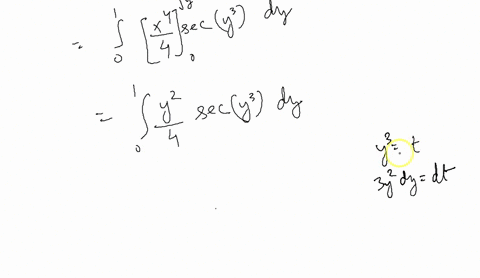 = ∫₀¹ [x⁴/4]₀^√y sec(y³) dy
= ∫₀¹ y²/4 sec(y³) dy
y³ = t
3y² dy = dt